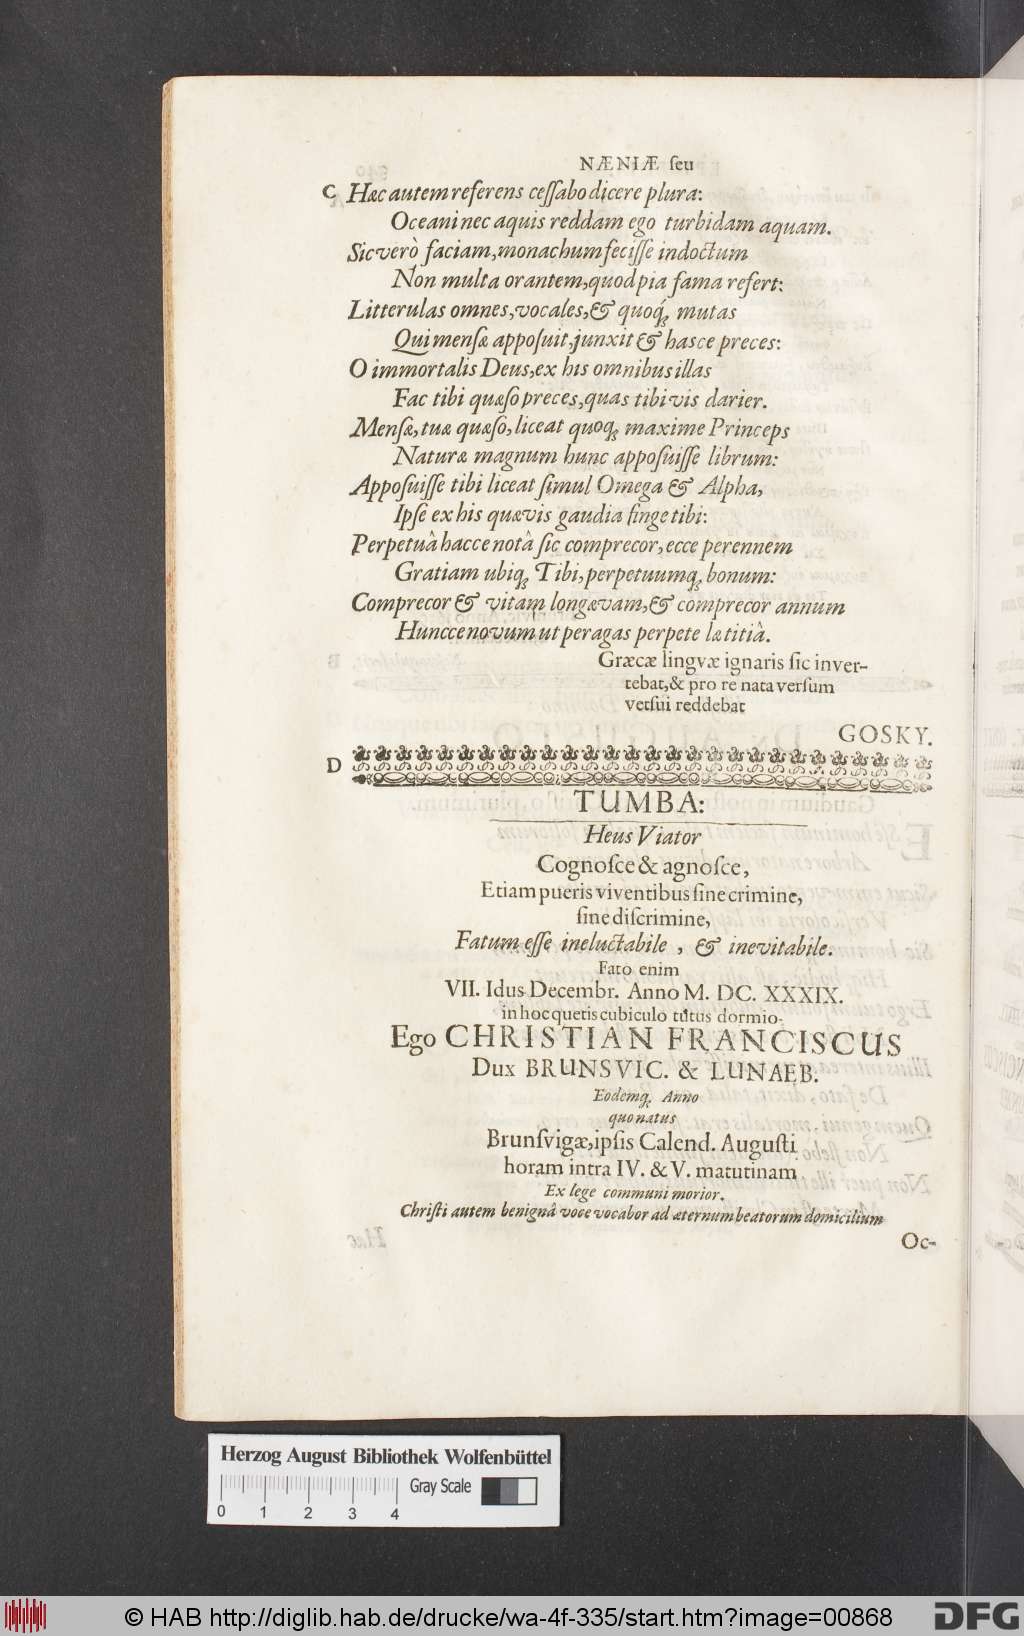 NÆNIÆ ſeu
C Hæc autem referens ceſſabo dicere plura:
Oceani nec aquis reddam ego turbidam aquam.
Sic verò faciam, monachum feciſſe indoctum
Non multa orantem, quod pia fama refert:
Litterulas omnes, vocales, & quoq́ꝫ mutas
Qui menſæ appoſuit, junxit & hasce preces:
O immortalis Deus, ex his omnibus illas
Fac tibi quæſo preces, quas tibi vis darier.
Menſæ, tuæ quæſo, liceat quoqꝫ maxime Princeps
Naturæ magnum hunc appoſuiſſe librum:
Appoſuiſſe tibi liceat ſimul Omega & Alpha,
Ipſe ex his quævis gaudia finge tibi:
Perpetuâ hacce notâ ſic comprecor, ecce perennem
Gratiam ubiqꝫ Tibi, perpetuumqꝫ bonum:
Comprecor & vitam longævam, & comprecor annum
Huncce novum ut peragas perpete lætitiâ.
Græcæ lingvæ ignaris ſic inver-
tebat, & pro re nata verſum
verſui reddebat
GOSKY.
D
TUMBA:
Heus Viator
Cognoſce & agnoſce,
Etiam pueris viventibus ſine crimine,
ſine diſcrimine,
Fatum eſſe ineluctabile, & inevitabile.
Fato enim
VII. Idus Decembr. Anno M. DC. XXXIX.
in hoc quetis cubiculo tutus dormio.
Ego CHRISTIAN FRANCISCUS
Dux BRUNSVIC. & LUNAEB.
Eodemqꝫ Anno
quo natus
Brunſvigæ, ipſis Calend. Auguſti
horam intra IV. & V. matutinam
Ex lege communi morior.
Chriſti autem benignâ voce vocabor ad æternum beatorum domicilium
Oc-
Herzog August Bibliothek Wolfenbüttel
Gray Scale
0 1 2 3 4
© HAB http://diglib.hab.de/drucke/wa-4f-335/start.htm?image=00868
DFG